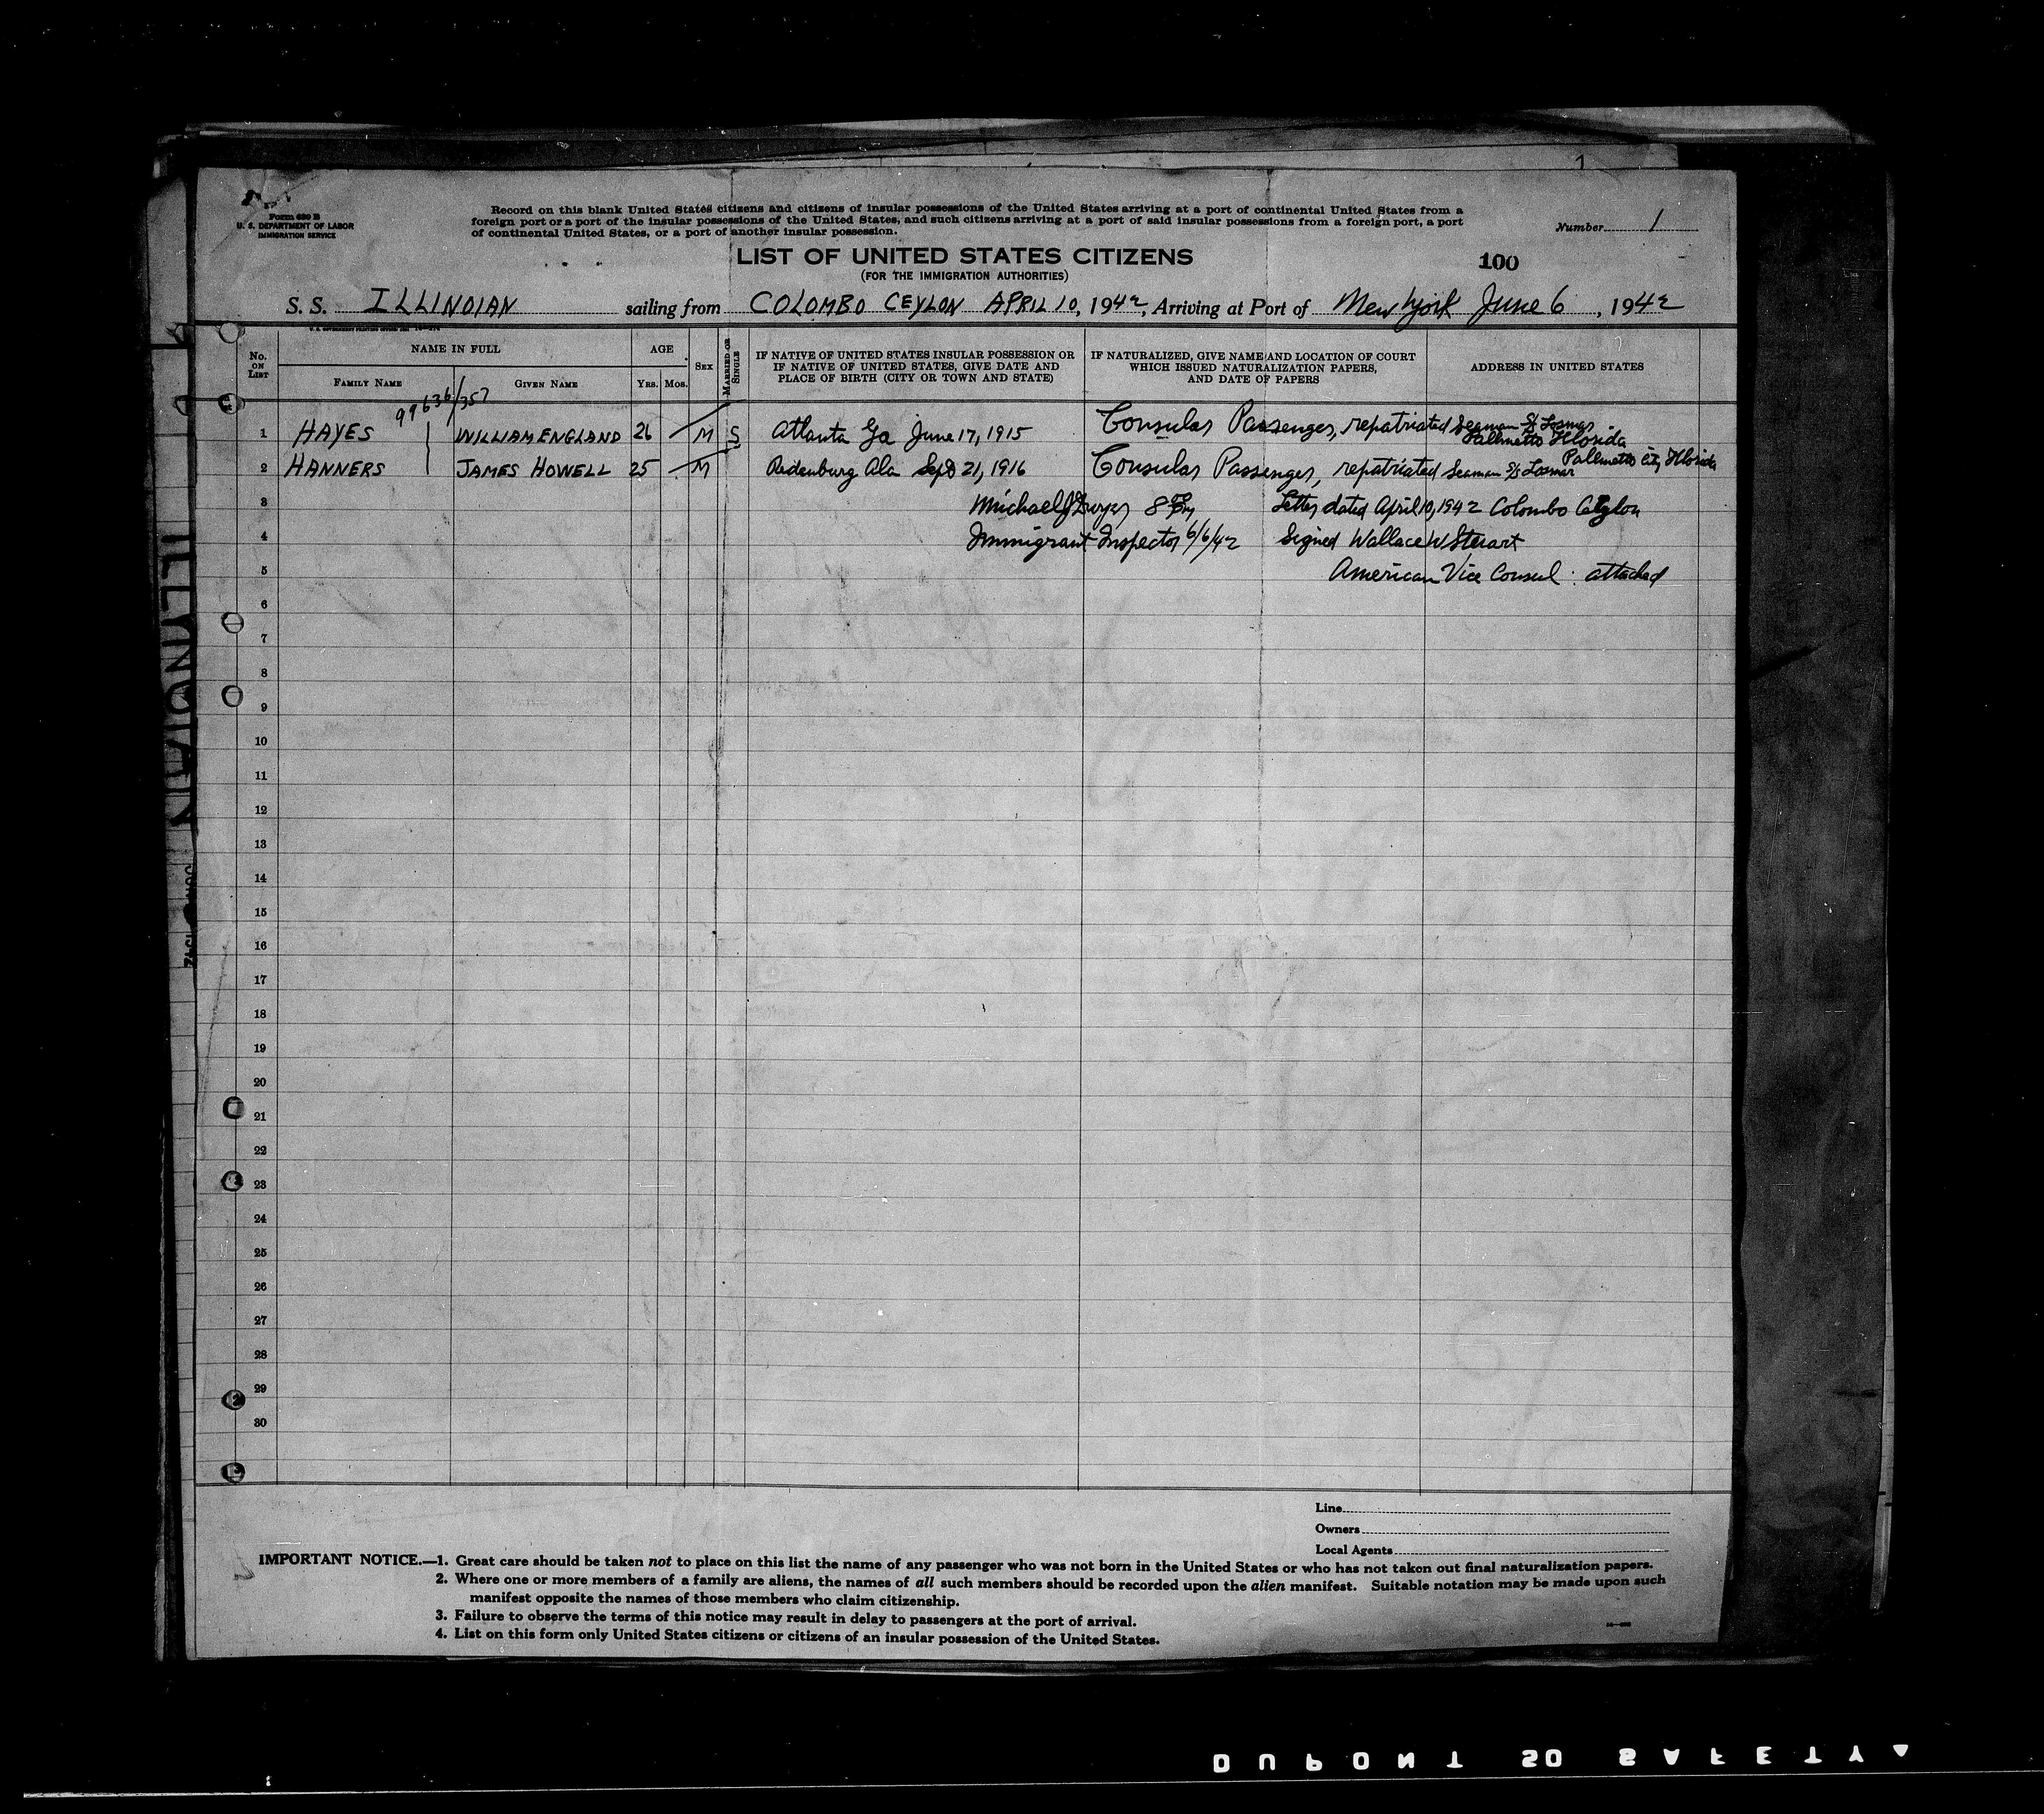 1
Form 630 B
U. S. DEPARTMENT OF LABOR
IMMIGRATION SERVICE
Record on this blank United States citizens and citizens of insular possessions of the United States arriving at a port of continental United States from a
foreign port or a port of the insular possessions of the United States, and such citizens arriving at a port of said insular possessions from a foreign port, a port
of continental United States, or a port of another insular possession.
Number 1
LIST OF UNITED STATES CITIZENS
(FOR THE IMMIGRATION AUTHORITIES)
100
S. S. ILLINOIAN sailing from COLOMBO CEYLON APRIL 10, 1942, Arriving at Port of New York June 6, 1942
No. ON LIST
NAME IN FULL
FAMILY NAME
GIVEN NAME
AGE
YRS. MOS.
SEX
MARRIED OR SINGLE
IF NATIVE OF UNITED STATES INSULAR POSSESSION OR
IF NATIVE OF UNITED STATES, GIVE DATE AND
PLACE OF BIRTH (CITY OR TOWN AND STATE)
IF NATURALIZED, GIVE NAME AND LOCATION OF COURT
WHICH ISSUED NATURALIZATION PAPERS,
AND DATE OF PAPERS
ADDRESS IN UNITED STATES
99636/357
1 HAYES WILLIAM ENGLAND 26 M S Atlanta Ga June 17, 1915 Consular Passenger, repatriated Seaman S/S Losmar
Palmetto Florida
2 HANNERS JAMES HOWELL 25 M Ala Sept 21, 1916 Consular Passenger, repatriated Seaman S/S Losmar
Palmetto City Florida
3 Michael J Letter dated April 10, 1942 Colombo Ceylon
4 Immigrant Inspector 6/6/42 Signed Wallace W Stuart
5 American Vice Consul : attached
6
7
8
9
10
11
12
13
14
15
16
17
18
19
20
21
22
23
24
25
26
27
28
29
30
Line
Owners
Local Agents
IMPORTANT NOTICE.—1. Great care should be taken not to place on this list the name of any passenger who was not born in the United States or who has not taken out final naturalization papers.
2. Where one or more members of a family are aliens, the names of all such members should be recorded upon the alien manifest. Suitable notation may be made upon such
manifest opposite the names of those members who claim citizenship.
3. Failure to observe the terms of this notice may result in delay to passengers at the port of arrival.
4. List on this form only United States citizens or citizens of an insular possession of the United States.
ILLYNOIAIN
DUPONT SO SAFETY